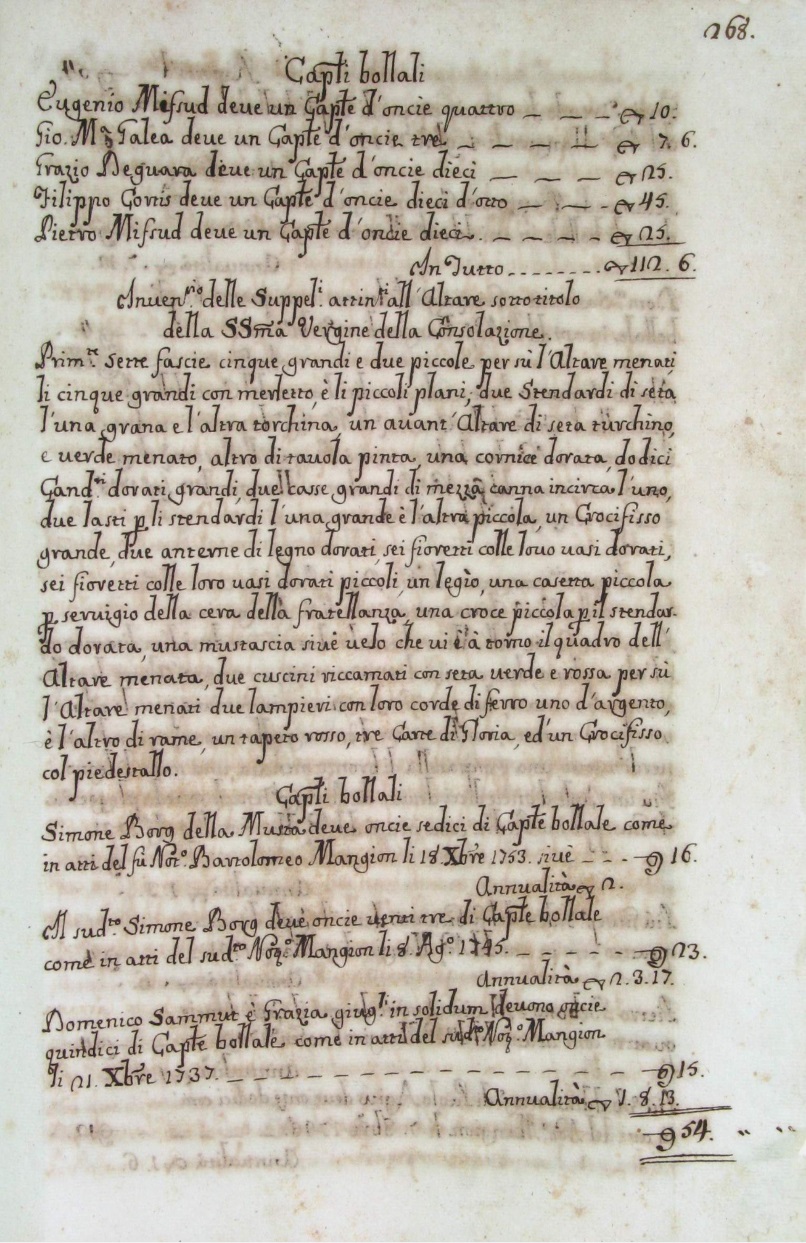 268.
Cap̃li bollali
Eugenio Mifsud deve un Cap̃le d'oncie quattro _ _ _ 10:
Gio. M.ª Galea deve un Cap̃le d'oncie tre _ _ _ 7. 6.
Grazio Deguara deve un Cap̃le d'oncie dieci _ _ _ 25.
Filippo Gonis deve un Cap̃le d'oncie dieci d'otto _ _ _ 45.
Pietro Mifsud deve un Cap̃le d'oncie dieci. _ _ _ _ 25.
In Tutto........ 112. 6.
Inven.rio delle Suppel.i attin.ti all'Altare sotto titolo
della SSm̃a Vergine della Consolazione.
Prim.te sette fascie cinque grandi e due piccole per sù l'Altare menati
li cinque grandi con merletto, è li piccoli plani, due Stendardi di seta
l'una grana e l'altra torchina, un avant'Altare di seta turchino,
e verde menato, altro di tavola pinta, una cornice dorata, dodici
Cand.ri dorati grandi, due casse grandi di mezza canna incirca l'uno,
due lasti p̱ li stendardi l'una grande è l'altra piccola, un Crocifisso
grande, due anterne di legno dorati, sei fioretti colle loro vasi dorati,
sei fioretti colle loro vasi dorati piccoli, un legìo, una casetta piccola
p̱ servigio della cera della fratellanza, una croce piccola p̱ il stendar-
do dorata, una mustascia sivè velo che vi è à torno il quadro dell'
Altare menata, due cuscini riccamati con seta verde e rossa per sù
l'Altare menati due lampieri con loro corde di ferro uno d'argento,
è l'altro di rame, un tapeto rosso, tre Carte di Gloria, ed'un Crocifisso
col piedestallo.
Cap̃li bollali
Simone Borg della Musta deve oncie sedici di Cap̃le bollale come
in atti del fù Not.o Bartolomeo Mangion li 18. Xb̃re 1753. sivè _ _ _ 16.
Annualità 2.
Il sud.to Simone Borg deve oncie venti tre di Cap̃le bollale
come in atti del sud.to Not.o Mangion li 8. Ag.o 1745. _ _ _ _ _ 23.
Annualità 2. 3. 17.
Domenico Sammut è Grazia giug.li in solidum devono oncie
quindici di Cap̃le bollale come in atti del sud.to Not.o Mangion
li 21. Xb̃re 1737. _ _ _ _ _ _ _ _ _ _ _ _ _ _ 15.
Annualità 1. 8. 13.
54.